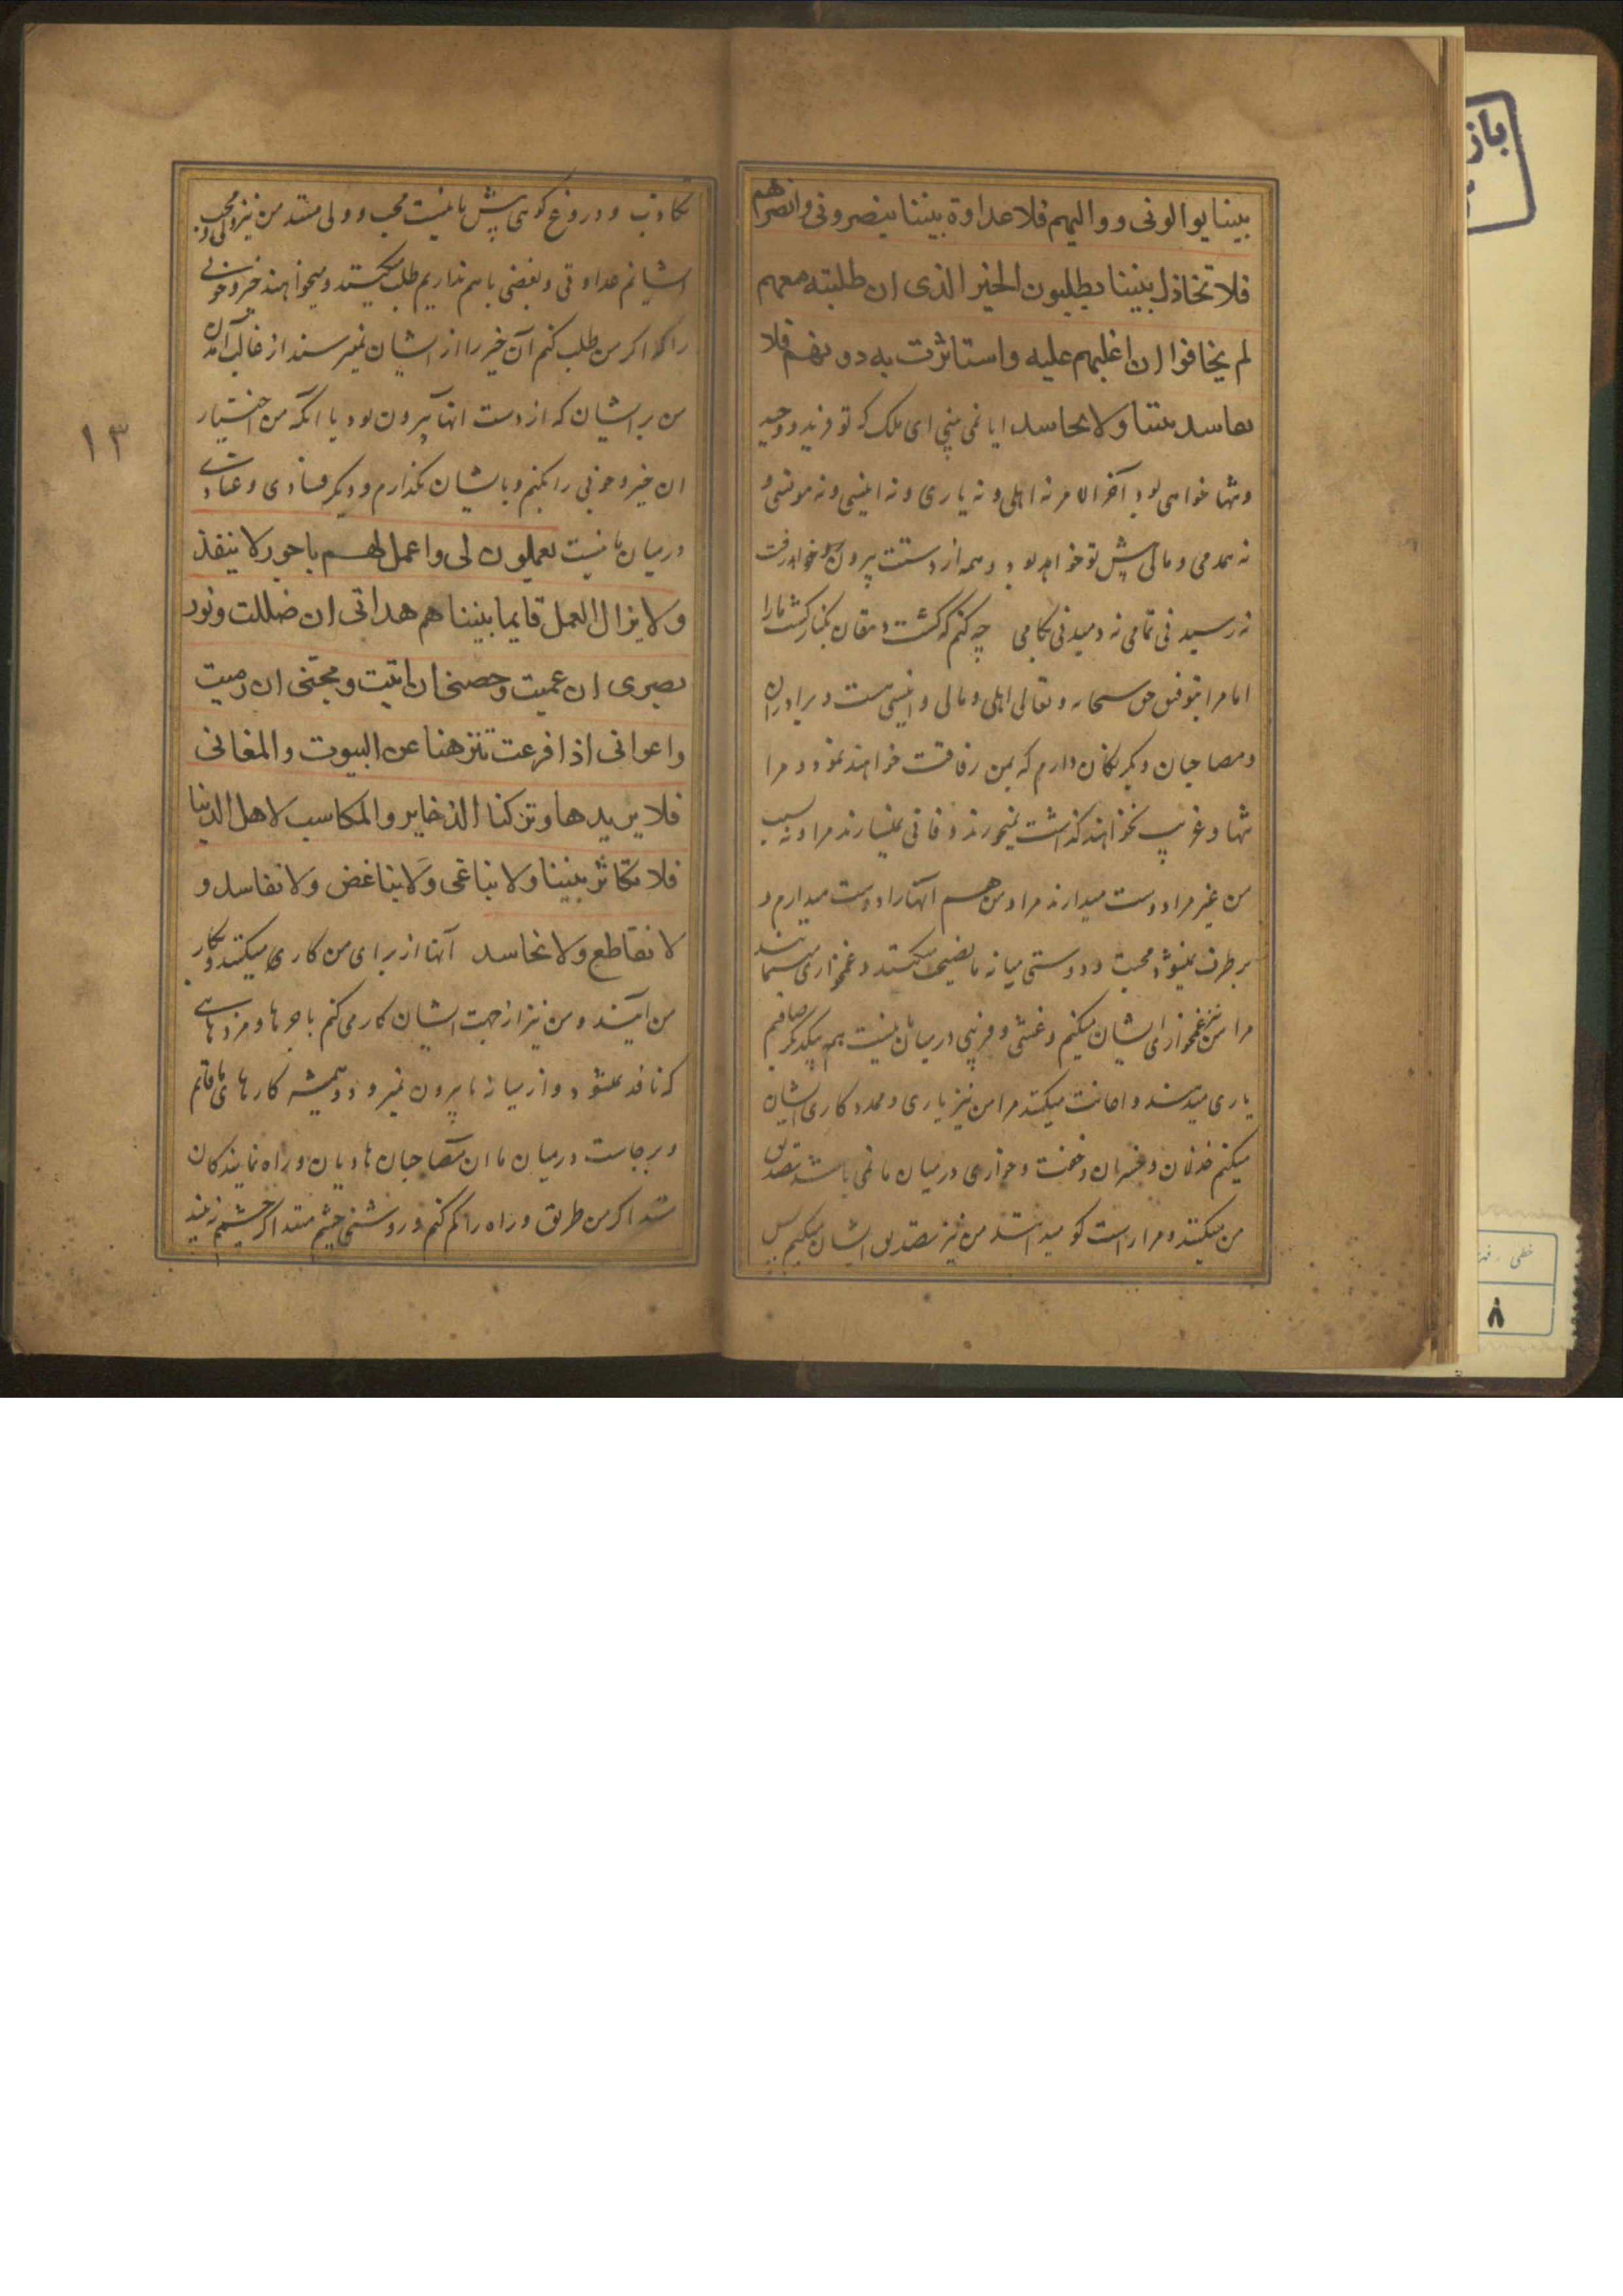 بيننا يوالونی وواليهم فلا عداوة بيننا ينصرونی وانصرهم
فلا تخاذل بيننا يطلبون الخير الذی ان طلبته معهم
لم يخافوا ان اغلبهم عليه واستاثرت به دونهم فلا
تفاسد بيننا ولا تحاسد ايا نمی بينی ای ملک که تو فريد و وحيد
وتنها خواهی بود آخر الامر نه اهلی و نه ياری و نه انيسی و نه مونسی و
نه همدمی و مالی پيش تو خواهد بود و همه از دستت بيرون خواهد رفت
نه رسيدنی تمامی نه دميدنی بکامی چه کنم که کشت دهقان بکنار کشت ما را
اما مرا بتوفيق حق سبحانه و تعالی اهلی و مالی و انيسی هست و برادران
و مصاحبان و يگرنگان دارم که بمن رفاقت خواهند نمود و مرا
تنها و غريب نخواهند گذاشت
من غير مرا دوست ميدارند مرا و من هم آنها را دوست ميدارم و
برطرف نميشود محبت و دوستی ميانه ما نصيحت ميکنند و غمخواری مينمايند
مرا من نيز غمخواری ايشان ميکنم و غشی و فريبی در ميان ما نيست بهم يکديگر صافيم
ياری ميدهند و اعانت ميکنند مرا من نيز ياری و مددکاری ايشان
ميکنم خذلان و خسران و خفت و خواری در ميان ما نمی باشد تصديق
من ميکنند و مرا راست گو ميدانند من نيز تصديق ايشان ميکنم پس
تکاذب و دروغ گوئی پيش ما نيست محب و ولی هستند من نيز ولی و محب
ايشانم عداوتی و بغضی باهم نداريم طلب ميکنند و ميخواهند خير و خوبی
را که اگر من طلب کنم آن خير را از ايشان نميترسند از غالب آمدن
من بر ايشان که از دست انها بيرون رود يا انکه من اختيار
ان خير و خوبی را بکنم و بايشان نگذارم و ديگر فسادی و عنادی
در ميان ما نيست يعملون لی واعمل لهم باجور لا ينفذ
ولا يزال العمل قايما بيننا هم هداتی ان ضللت ونور
بصری ان عميت وحصنی ان اتيت ومجنی ان رميت
واعوانی اذا فزعت تنزهنا عن البيوت والمغانی
فلا يريدها وتركنا الذخاير والمكاسب لاهل الدنيا
فلا تكاثر بيننا ولا تباغی ولا تباغض ولا تفاسد و
لا تقاطع ولا تحاسد آنها از برای من کاری ميکنند و بکار
من آيند و من نيز از جهت ايشان کار می کنم باجرها و مزدهای
که نافد نميشود و از ميانه ما بيرون نميرود و هميشه کارهای ما قائم
و برجاست در ميان ما ان مصاحبان هاديان و راه نمايندگان
هستند اگر من طريق و راه را گم کنم و روشنی چشم منند اگر چشمم نه بيند
۱۳
باز
خطی
۸